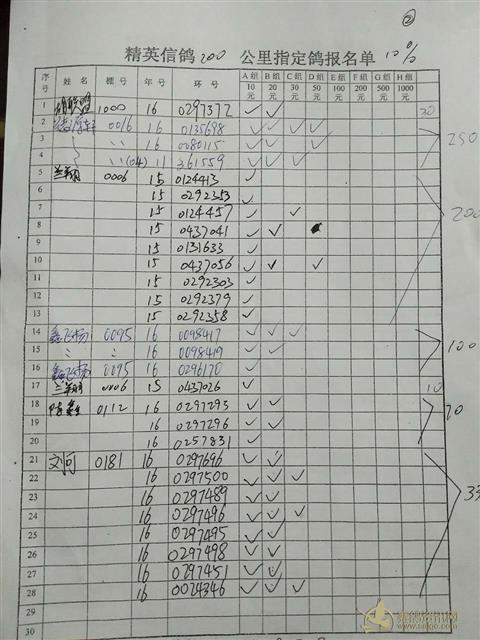 ②
精英信鸽 200 公里指定鸽报名单 10%
序号 姓名 棚号 年号 环号 A组10元 B组20元 C组30元 D组50元 E组100元 F组200元 G组500元 H组1000元
1 1000 16 0297372 ✓ ✓ 30
2 0016 16 0135698 ✓ ✓ ✓ ✓
3 〃 16 0080115 ✓ ✓ ✓
4 〃 (04) 11 361559 ✓ ✓ ✓ ✓ 250
5 兰翔 0006 15 0124413 ✓
6 15 0292353 ✓
7 15 0124457 ✓ ✓ 200
8 15 0437041 ✓ ✓
9 15 0131633 ✓
10 15 0437056 ✓ ✓ ✓
11 15 0292303 ✓
12 15 0292379 ✓
13 15 0292358 ✓
14 鑫飞扬 0095 16 0098417 ✓ ✓ ✓
15 〃 〃 16 0098419 ✓ ✓ 100
16 鑫飞扬 0095 16 0296170 ✓
17 兰翔 0006 15 0437026 ✓ 10
18 0112 16 0297293 ✓ ✓ 70
19 16 0297296 ✓ ✓
20 16 0257831 ✓
21 文问 0181 16 0297696 ✓ ✓
22 16 0297500 ✓ ✓ ✓
23 16 0297489 ✓ ✓
24 16 0297496 ✓ ✓ ✓ 33
25 16 0297495 ✓ ✓
26 16 0297498 ✓ ✓
27 16 0297451 ✓ ✓
28 16 0024346 ✓ ✓ ✓
29
30